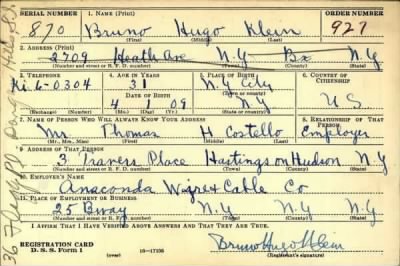 SERIAL NUMBER 1. NAME (Print) ORDER NUMBER
870 Bruno Hugo Klein 927
(First) (Middle) (Last)
2. ADDRESS (Print)
2709 Heath Ave N.Y. Bx N.Y
(Number and street or R. F. D. number) (Town) (County) (State)
3. TELEPHONE 4. AGE IN YEARS 5. PLACE OF BIRTH 6. COUNTRY OF CITIZENSHIP
Ki. 6-0304 31 N.Y. City
DATE OF BIRTH
4 1 09 NY US
(Exchange) (Number) (Mo.) (Day) (Yr.) (State or country)
7. NAME OF PERSON WHO WILL ALWAYS KNOW YOUR ADDRESS 8. RELATIONSHIP OF THAT PERSON
Mr. Thomas H Costello Employer
(Mr., Mrs., Miss) (First) (Middle) (Last)
9. ADDRESS OF THAT PERSON
3 Travers Place Hastings on Hudson N.Y
(Number and street or R. F. D. number) (Town) (County) (State)
10. EMPLOYER'S NAME
Anaconda Wire & Cable Co
11. PLACE OF EMPLOYMENT OR BUSINESS
25 Bway N.Y. N.Y. N.Y
(Number and street or R. F. D. number) (Town) (County) (State)
I AFFIRM THAT I HAVE VERIFIED ABOVE ANSWERS AND THAT THEY ARE TRUE.
REGISTRATION CARD
D. S. S. Form 1 (over) 16—17105 Bruno Hugo Klein
(Registrant's signature)